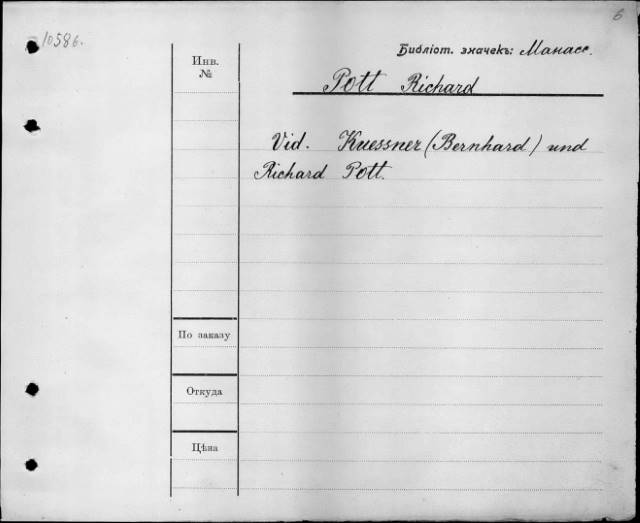 6
10586.
Библіот. значекъ: Манасс.
Инв.
№
Pott Richard
Vid. Kuessner (Bernhard) und
Richard Pott.
По заказу
Откуда
Цѣна